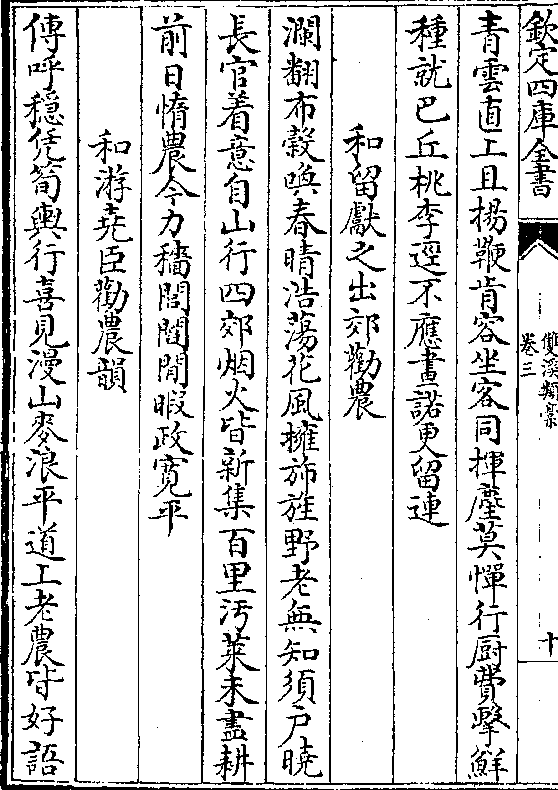 欽定四庫全書
雙溪類藁
卷三
十
青雲直上且揚鞭肯容坐客同揮麈莫憚行厨費擊鮮
種就巴丘桃李逕不應畫諾更留連
和留獻之出郊勸農
瀾翻布穀喚春晴浩蕩花風擁斾旌野老無知須戶曉
長官着意自山行四郊烟火皆新集百里汚萊未盡耕
前日惰農今力穡閭閻閒暇政寛平
和游堯臣勸農韻
傳呼穩凭筍輿行喜見漫山麥浪平道上老農皆好語